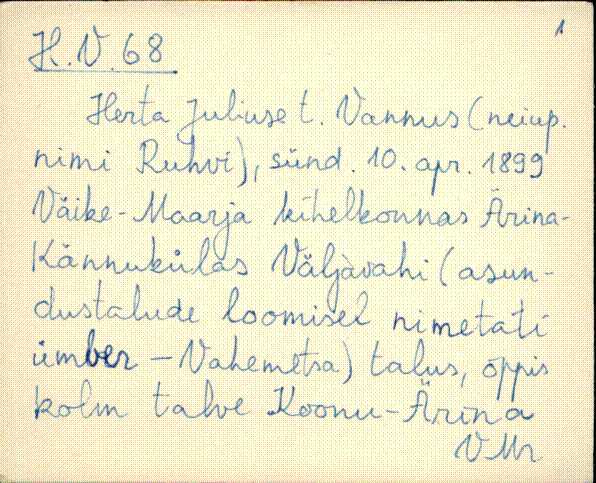 1
H.V.68
Herta Juliuse t. Vannus (neiup.
nimi Ruhvi), sünd. 10. apr. 1899
Väike-Maarja kihelkonnas Ärina-
Kännukülas Väljavahi (asun-
dustalude loomisel nimetati
ümber – Vahemetsa) talus, õppis
kolm talve Koonu-Ärina
VMr